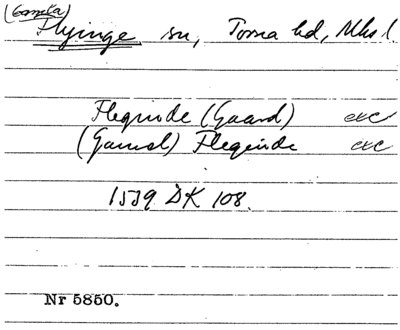 (Gamla)
Flyinge sn, Torna hd, Mhs l.
Fleginde (Gaard) exc
(Gamel) Fleginde exc
1539 DK 108.
Nr 5850.